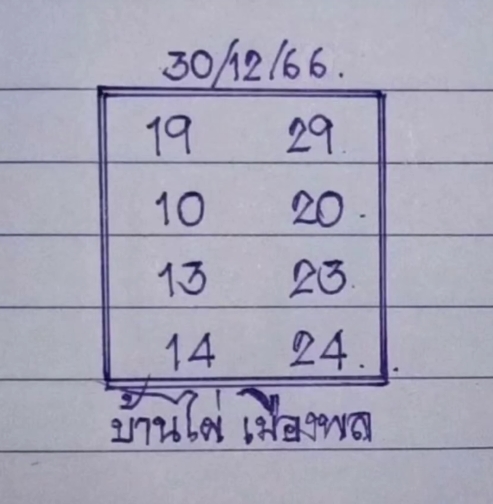 30/12/66.
19 29.
10 20.
13 23.
14 24..
บ้านไผ่ เมืองพล